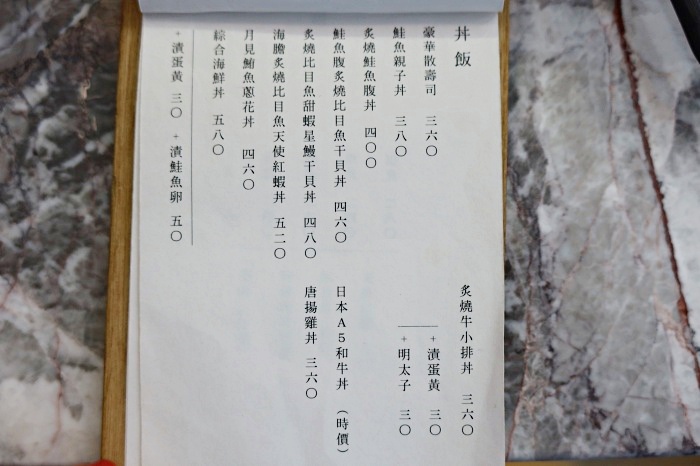 丼飯
豪華散壽司 三六〇
鮭魚親子丼 三八〇
炙燒鮭魚腹丼 四〇〇
鮭魚腹炙燒比目魚干貝丼 四六〇
炙燒比目魚甜蝦星鰻干貝丼 四八〇
海膽炙燒比目魚天使紅蝦丼 五二〇
月見鮪魚蔥花丼 四六〇
綜合海鮮丼 五八〇
+漬蛋黃 三〇 +漬鮭魚卵 五〇
炙燒牛小排丼 三六〇
+漬蛋黃 三〇
+明太子 三〇
日本A5和牛丼 (時價)
唐揚雞丼 三六〇